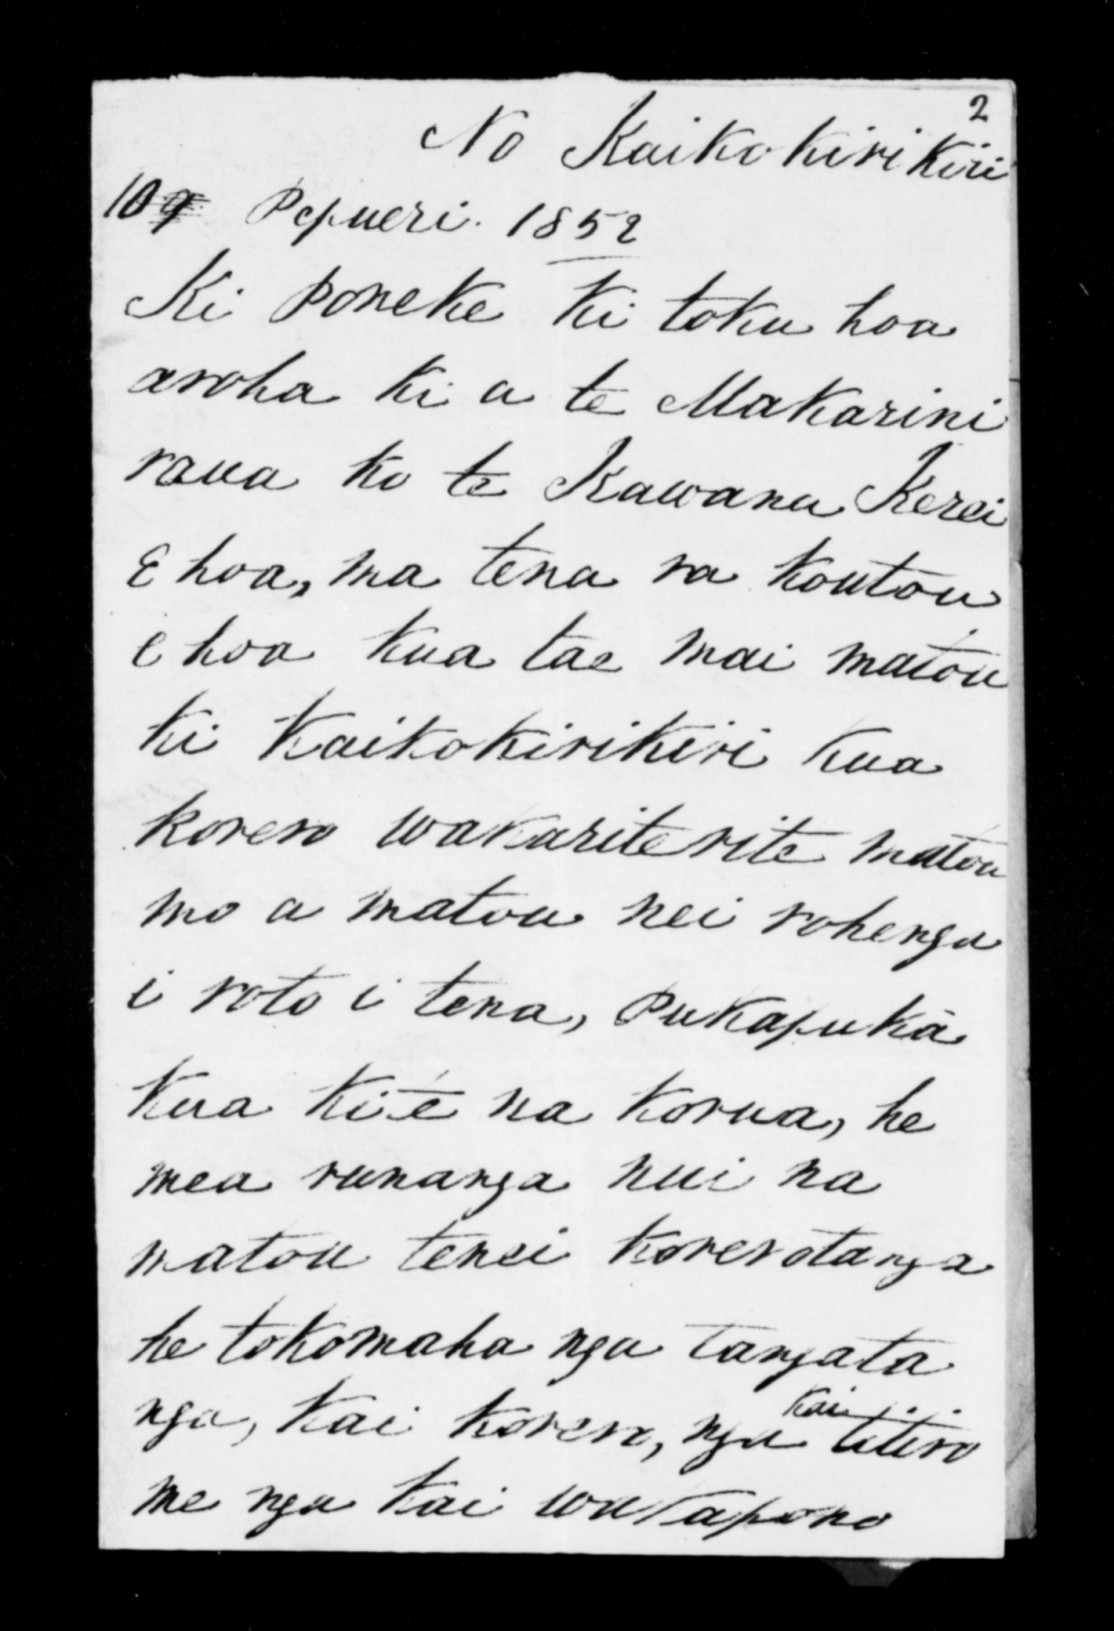 2
No Kaikokirikiri
10 Pepueri. 1852
Ki Poneke ki toku hoa
aroha ki a te Makarini
raua ko te Kawana Kerei
E hoa, ma tena ra koutou
e hoa kua tae mai matou
ki Kaikokirikiri kua
korero wakariterite matou
mo a matou nei rohenga
i roto i tena, Pukapuka
kua kite na korua, he
mea runanga nui na
matou tenei korerotanga
he tokomaha nga tangata
nga, kai korero, nga kai titiro
me nga kai wakapono